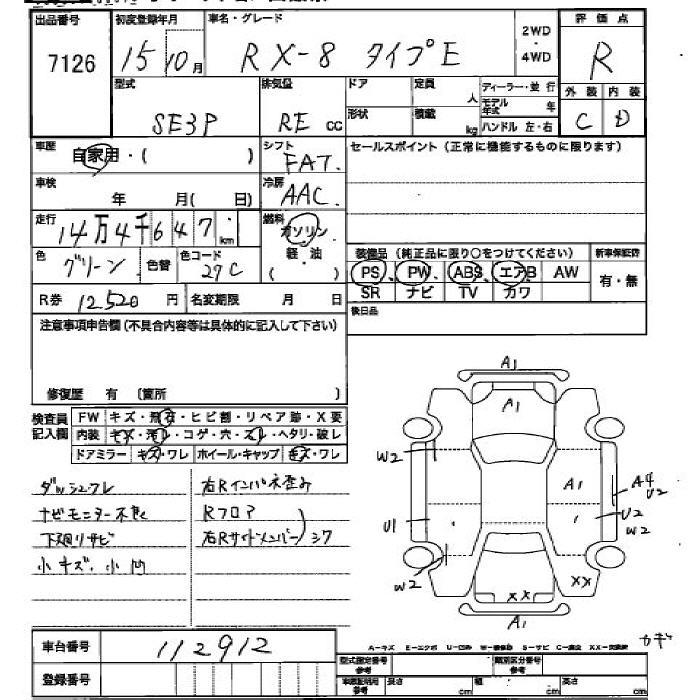 出品番号 初度登録年月 車名・グレード 2WD ・ 4WD 評価点
7126 15 10月 RX-8 タイプE R
型式 排気量 ドア 定員 人 ディーラー・並 行 外装 内装
SE3P RE cc 形状 積載 kg モデル年式 年 C D
ハンドル 左・右
車歴 自家用・( ) シフト FAT. セールスポイント (正常に機能するものに限ります)
車検 年 月( 日) 冷房 AAC.
走行 14万4千647. km 燃料 ガソリン 軽・油 ( )
色 グリーン 色替 色コード 27C 装備品 (純正品に限り○をつけてください) 新車保証書
PS PW ABS エアB AW 有・無
R券 12.520 円 名変期限 月 日 SR ナビ TV カワ
後日品
注意事項申告欄 (不具合内容等は具体的に記入して下さい)
修復歴 有 〔箇所 〕
検査員記入欄 FW キズ・飛石・ヒビ割・リペア跡・X要
内装 キズ・汚レ・コゲ・穴・スレ・ヘタリ・破レ
ドアミラー キズ・ワレ ホイール・キャップ キズ・ワレ
ダッシュワレ 右Rインパネ歪み
ナビモニター不良 Rフロア
下廻りサビ 右Rサイドメンバー シワ
小キズ、小凹
A1
A1
W2
A1
A4
U2
U1
U2
W2
W2
XX
XX
A1
カギ
車台番号 112912
登録番号
A-キズ E-エクボ U-凹み S-サビ XX-交換済
型式指定番号 参考 類別区分番号 参考
長さ cm 幅 cm 高さ cm